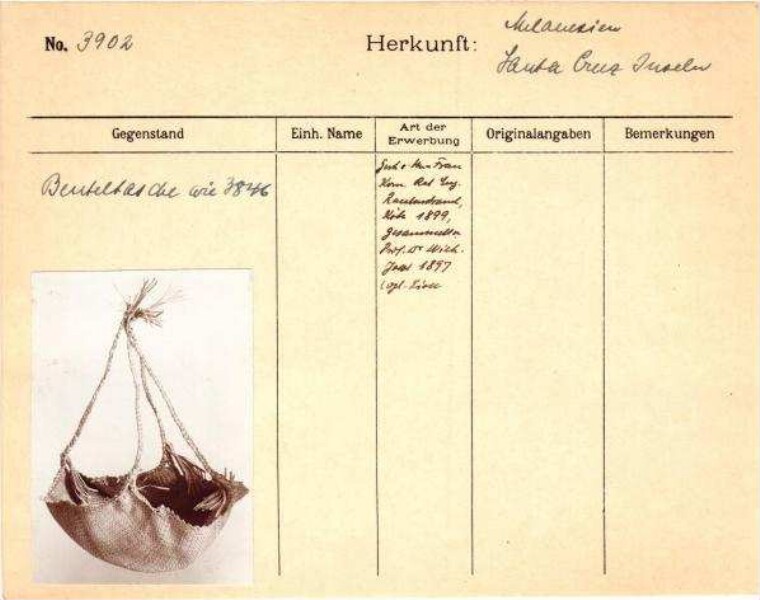 No. 3902
Herkunft: Melanesien
Santa Cruz Inseln
Gegenstand
Einh. Name
Art der Erwerbung
Originalangaben
Bemerkungen
Beuteltasche wie 3846
Frau
Kom Rat Eug.
Rautenstrauch,
Köln 1899,
Prof. Dr Wilh.
Joest 1897